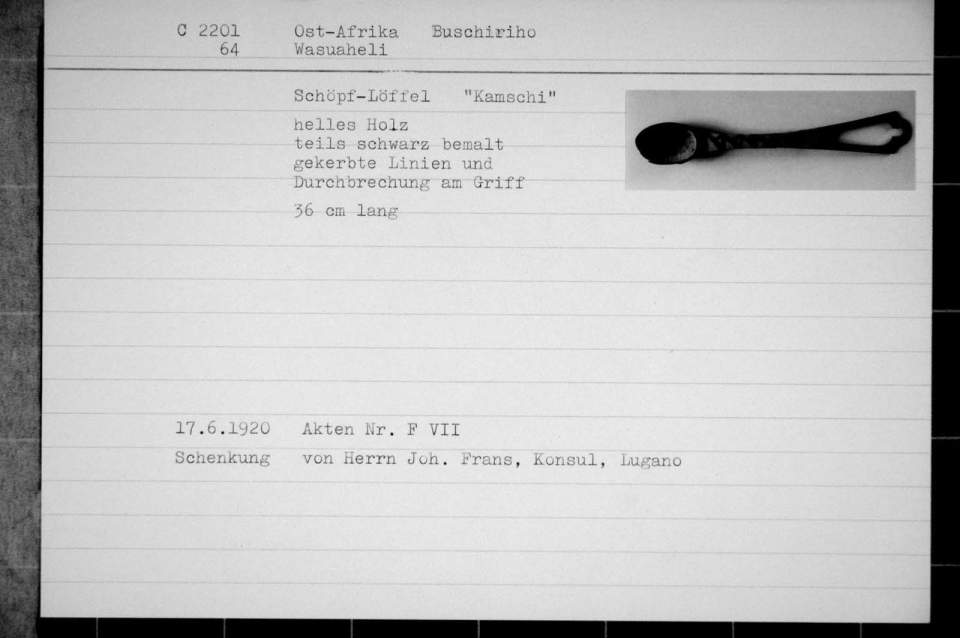 C 2201 Ost-Afrika Buschiriho
64 Wasuaheli
Schöpf-Löffel "Kamschi"
helles Holz
teils schwarz bemalt
gekerbte Linien und
Durchbrechung am Griff
36 cm lang
17.6.1920 Akten Nr. F VII
Schenkung von Herrn Joh. Frans, Konsul, Lugano